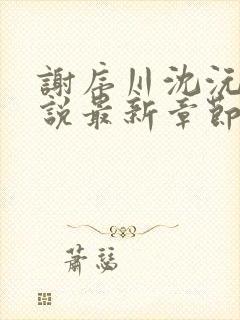 謝辰川沈沅
說最新章節
蕭瑟